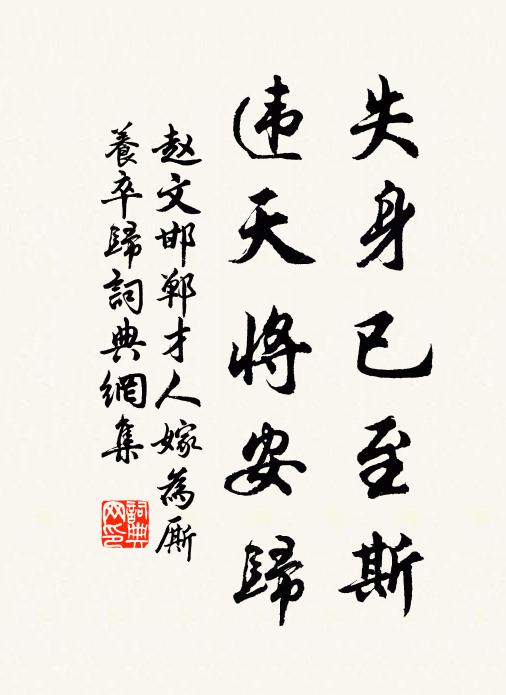 失身已至斯
违天将安歸
赵文邯郸才人嫁為厮
養卒歸詞典網集
詞典
网印